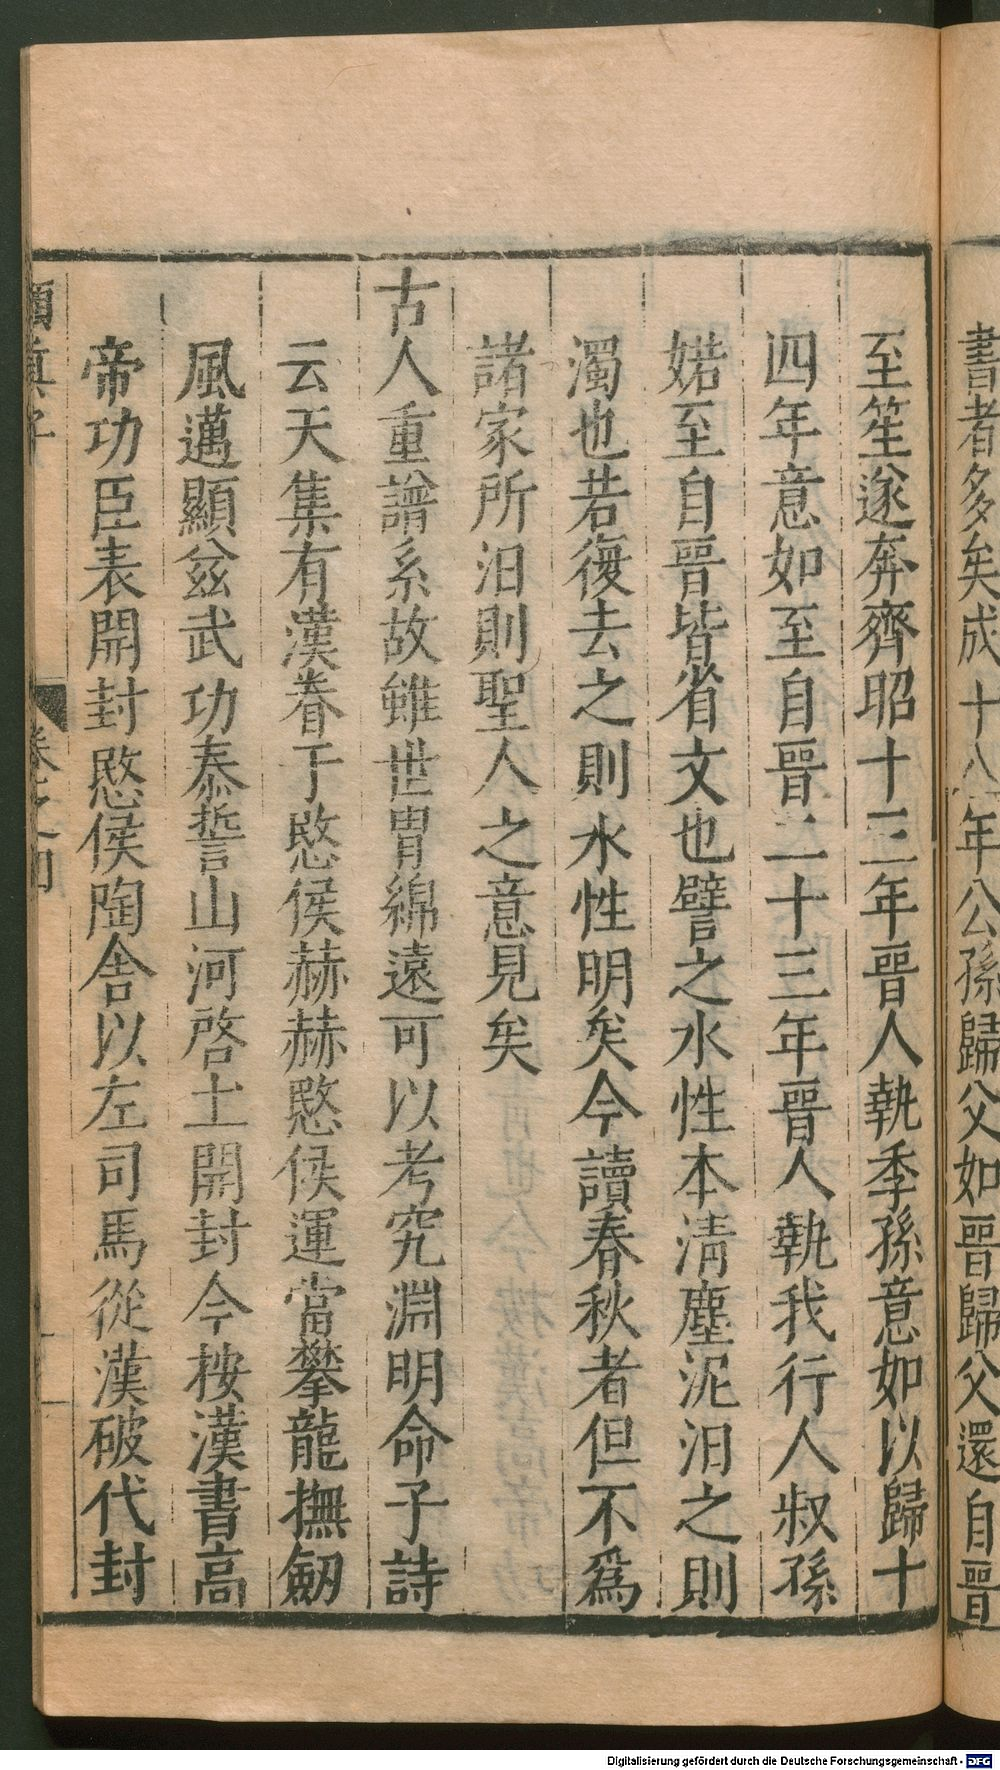 書者多矣成十八年公孫歸父如晉歸父還自晉
至笙遂奔齊昭十三年晉人執季孫意如以歸十
四年意如至自晉二十三年晉人執我行人叔孫
婼至自晉皆省文也譬之水性本清塵泥汨之則
濁也若復去之則水性明矣今讀春秋者但不爲
諸家所汨則聖人之意見矣
古人重譜系故雖世胄綿遠可以考究淵明命子詩
云天集有漢眷于愍侯赫赫愍侯運當攀龍撫劒
風邁顯兹武功泰誓山河啓土開封今按漢書高
帝功臣表開封愍侯陶舍以左司馬從漢破代封
嬾真子
卷之四
Digitalisierung gefördert durch die Deutsche Forschungsgemeinschaft - DFG